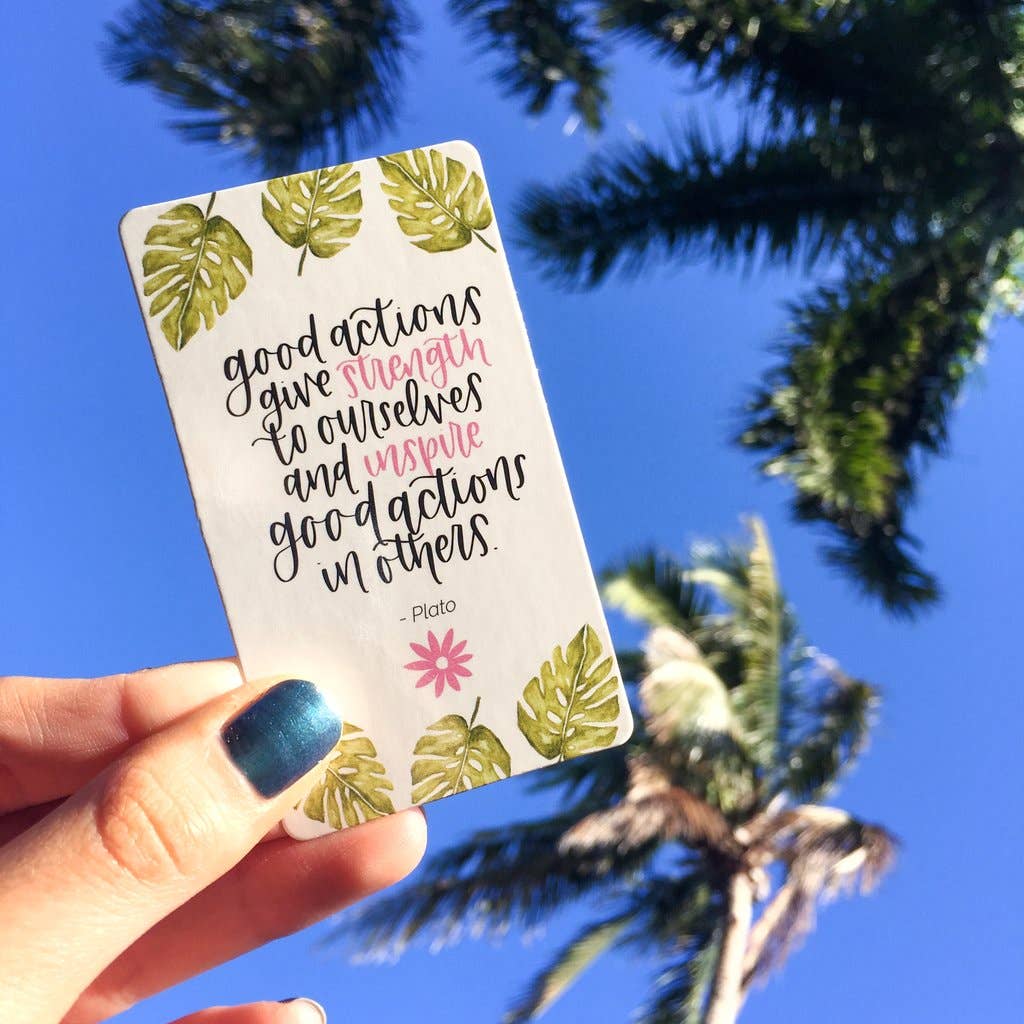 good actions
give strength
to ourselves
and inspire
good actions
in others.
- Plato